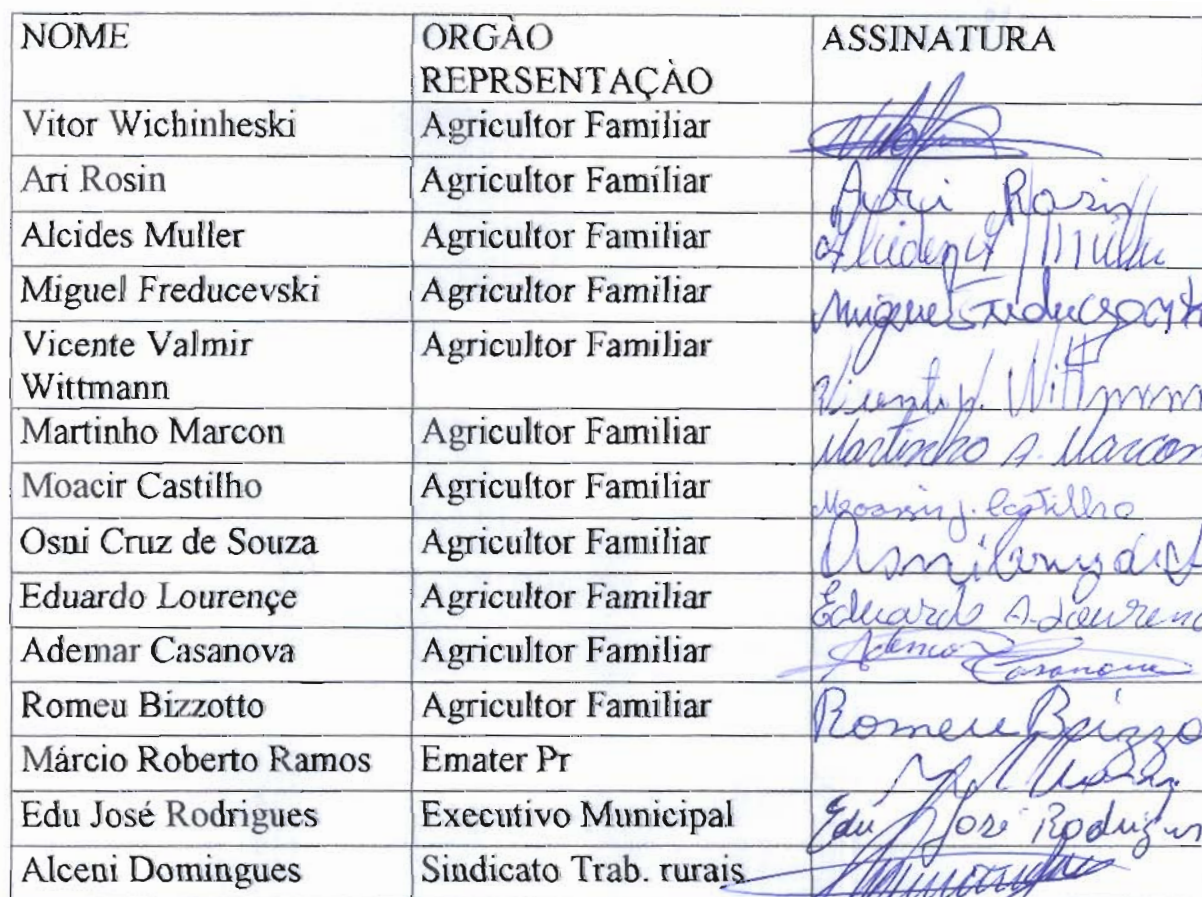 NOME ORGÀO REPRSENTAÇÀO ASSINATURA
Vitor Wichinheski Agricultor Familiar
Ari Rosin Agricultor Familiar Avri Rosin
Alcides Muller Agricultor Familiar Alcides Muller
Miguel Freducevski Agricultor Familiar Miguel
Vicente Valmir
Wittmann Agricultor Familiar Vicente V. Wittmann
Martinho Marcon Agricultor Familiar Martinho A. Marcon
Moacir Castilho Agricultor Familiar Moacir J. Castilho
Osni Cruz de Souza Agricultor Familiar
Eduardo Lourençe Agricultor Familiar Eduardo A. Lourenc
Ademar Casanova Agricultor Familiar Ademar Casanova
Romeu Bizzotto Agricultor Familiar Romeu Bizzo
Márcio Roberto Ramos Emater Pr
Edu José Rodrigues Executivo Municipal Edu José Rodrigues
Alceni Domingues Sindicato Trab. rurais